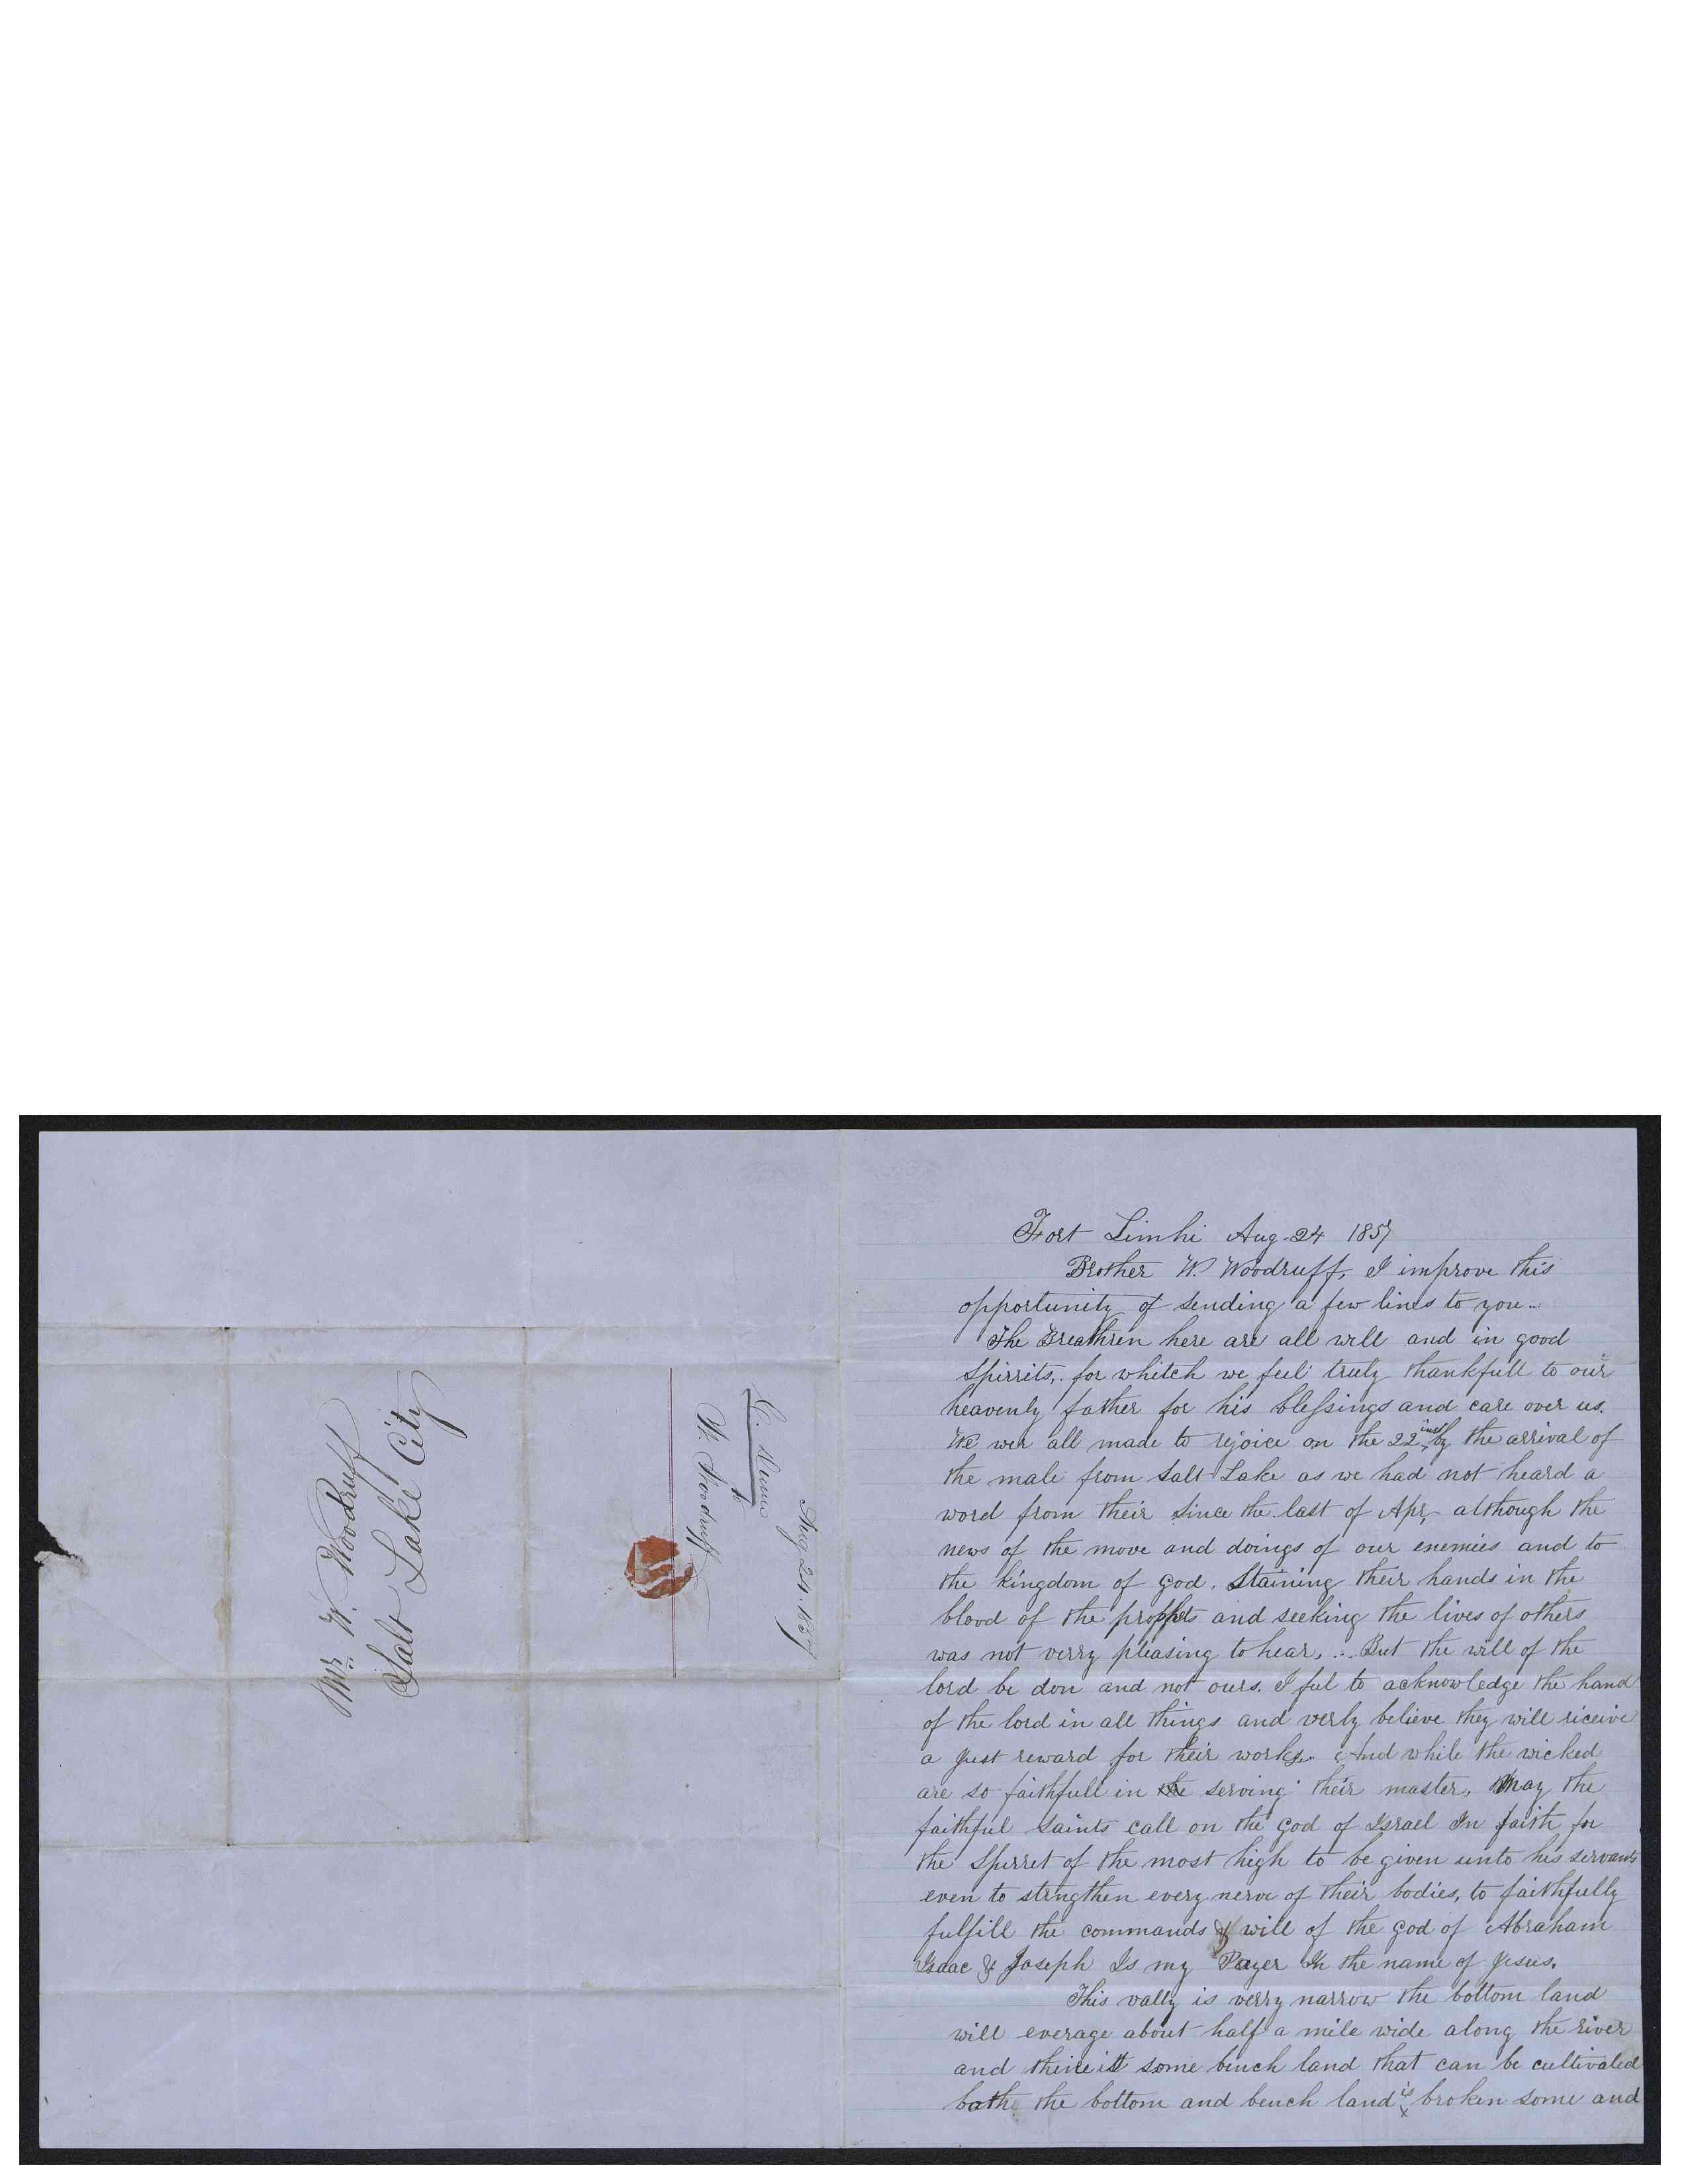 Mr. W. Woodruff
Salt Lake City
Aug. 24. 1857
to
W. Woodruff
Fort Limhi Aug 24 1857
Brother W. Woodruff, I improve this
opportunity of sending a few lines to you..
The Breathren here are all well and in good
spirrits, for whitch we feel truly thankfull to our
heavenly father for his blessings and care over us.
We wer all made to rejoice on the 22 inst by the arrival of
the male from Salt Lake as we had not heard a
word from their since the last of Apr, although the
news of the move and doings of our enemies and to
the kingdom of god. Staining their hands in the
blood of the prophets and seeking the lives of others
was not verry pleasing to hear, ... But the will of the
lord be don and not ours. I ful to acknowledge the hand
of the lord in all things and verly believe they will riceive
a just reward for their works. And while the wicked
are so faithfull in the serving their master, may the
faithful saints call on the god of Israel In faith for
the Spirret of the most high to be given unto his servants
even to stringthen every nerve of their bodies, to faithfully
fulfill the commands & will of the god of Abraham
Isaac & Joseph Is my Prayer In the name of Jesus.
This vally is verry narrow the bottom land
will everage about half a mile wide along the river
and some bench land that can be cultivated
bath the bottom and bench land is broken some and